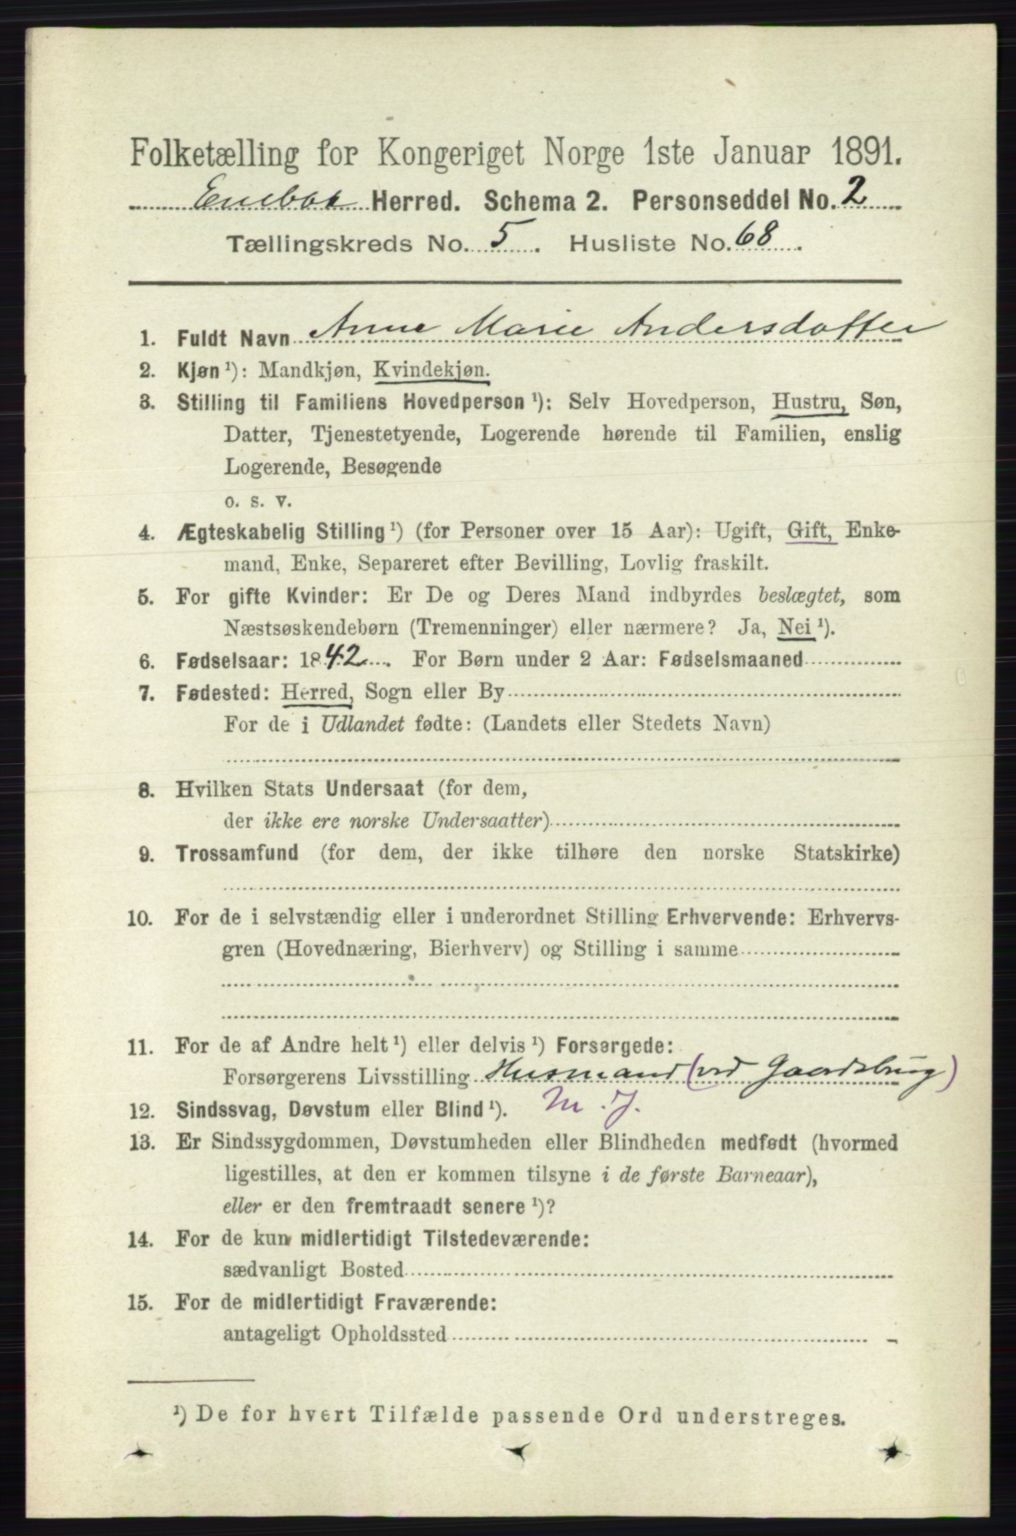 Folketælling for Kongeriget Norge 1ste Januar 1891.
Enebak Herred. Schema 2. Personseddel No. 2
Tællingskreds No. 5. Husliste No. 68.
1. Fuldt Navn Anne Marie Andersdatter
2. Kjøn ¹): Mandkjøn, Kvindekjøn.
3. Stilling til Familiens Hovedperson ¹): Selv Hovedperson, Hustru, Søn,
Datter, Tjenestetyende, Logerende hørende til Familien, enslig
Logerende, Besøgende
o. s. v.
4. Ægteskabelig Stilling ¹) (for Personer over 15 Aar): Ugift, Gift, Enke-
mand, Enke, Separeret efter Bevilling, Lovlig fraskilt.
5. For gifte Kvinder: Er De og Deres Mand indbyrdes beslægtet, som
Næstsøskendebørn (Tremenninger) eller nærmere? Ja, Nei ¹).
6. Fødselsaar: 1842. For Børn under 2 Aar: Fødselsmaaned
7. Fødested: Herred, Sogn eller By
For de i Udlandet fødte: (Landets eller Stedets Navn)
8. Hvilken Stats Undersaat (for dem,
der ikke ere norske Undersaatter)
9. Trossamfund (for dem, der ikke tilhøre den norske Statskirke)
10. For de i selvstændig eller i underordnet Stilling Erhvervende: Erhvervs-
gren (Hovednæring, Bierhverv) og Stilling i samme
11. For de af Andre helt ¹) eller delvis ¹) Forsørgede:
Forsørgerens Livsstilling Husmand (ved Gaardsbrug)
12. Sindssvag, Døvstum eller Blind ¹). m. J.
13. Er Sindssygdommen, Døvstumheden eller Blindheden medfødt (hvormed
ligestilles, at den er kommen tilsyne i de første Barneaar),
eller er den fremtraadt senere ¹)?
14. For de kun midlertidigt Tilstedeværende:
sædvanligt Bosted
15. For de midlertidigt Fraværende:
antageligt Opholdssted
¹) De for hvert Tilfælde passende Ord understreges.